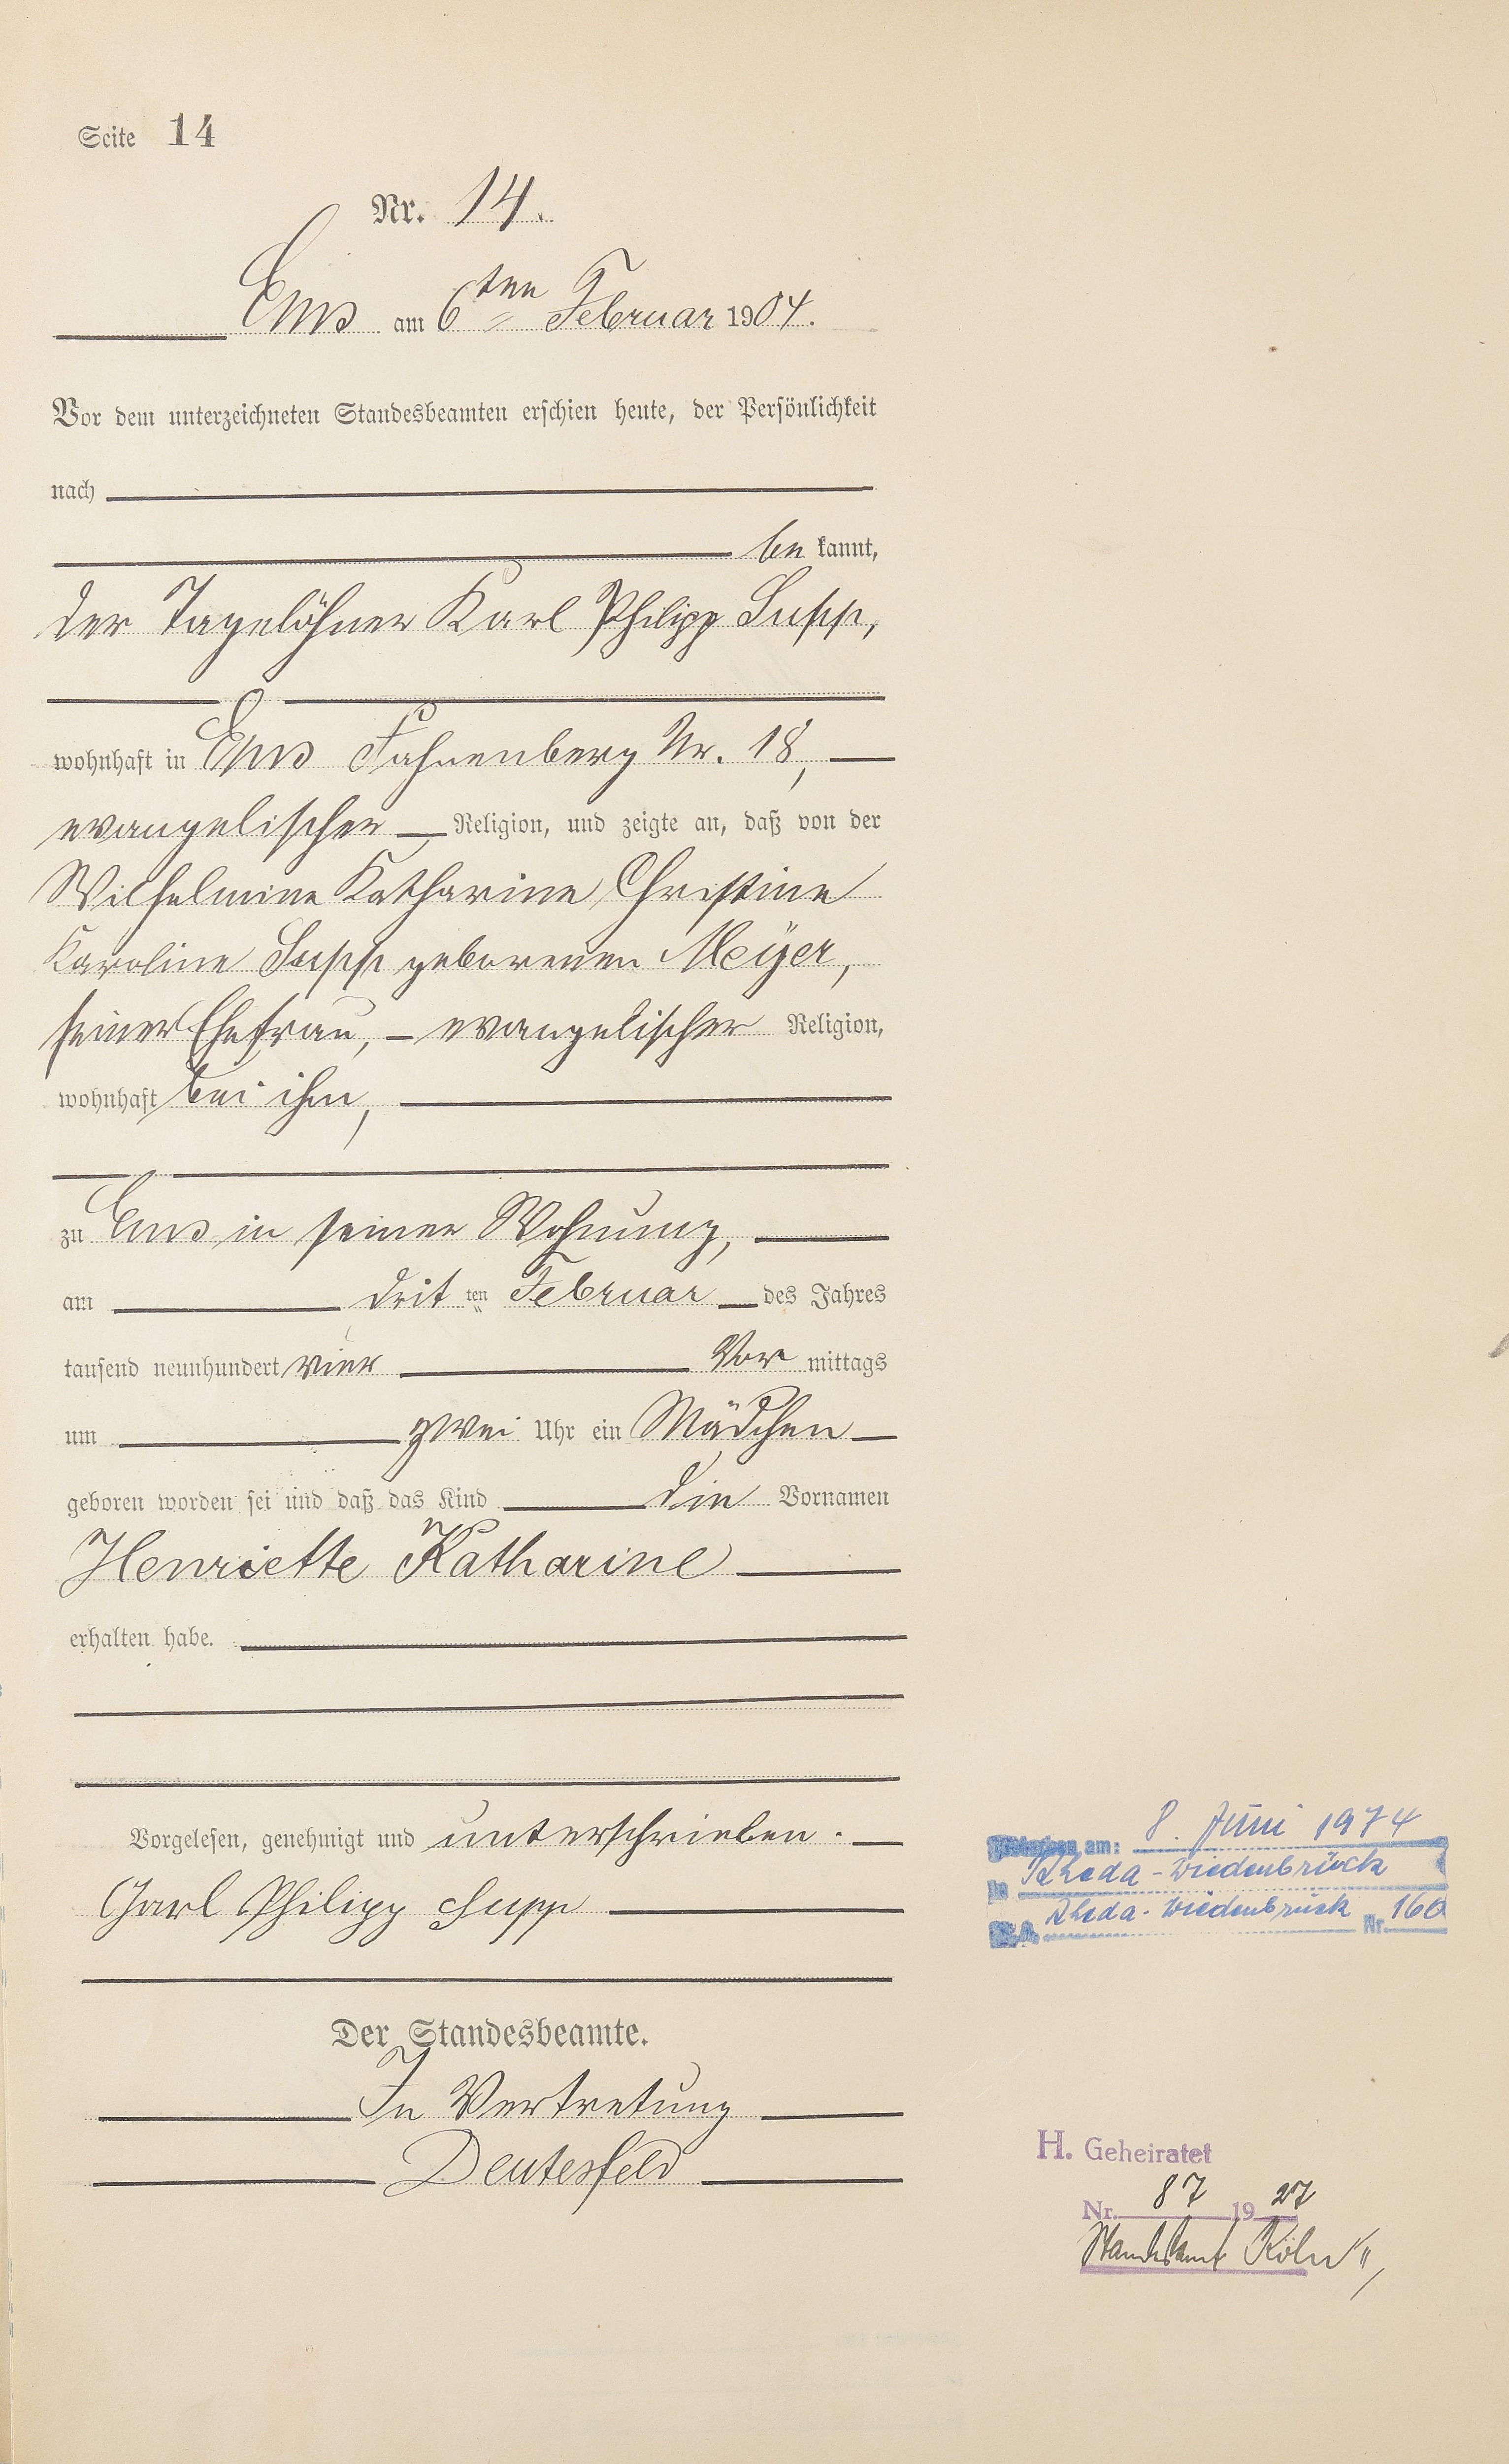 Seite 14
Nr. 14.
Ems am 6ten Februar 1904.
Vor dem unterzeichneten Standesbeamten erschien heute, der Persönlichkeit
nach
be kannt,
der Tagelöhner Karl Philipp Supp,
wohnhaft in Ems Fahnenberg Nr. 18,
evangelischer Religion, und zeigte an, daß von der
Wilhelmine Katharine Christine
Karoline Supp geborenen Meÿer,
seiner Ehefrau, – evangelischer Religion,
wohnhaft bei ihm,
zu Ems in seiner Wohnung,
am drit ten Februar des Jahres
tausend neunhundert vier Vor mittags
um zwei Uhr ein Mädchen
geboren worden sei und daß das Kind die Vornamen
Henriette Katharine
erhalten habe.
Vorgelesen, genehmigt und unterschrieben.
Carl Philipp Supp
Der Standesbeamte.
In Vertretung
Deutesfeld
Gestorben am: 8. Juni 1974
in Rheda-Wiedenbrück
Rheda-Wiedenbrück Nr. 160
H. Geheiratet
Nr. 87 1927
Standesamt Köln